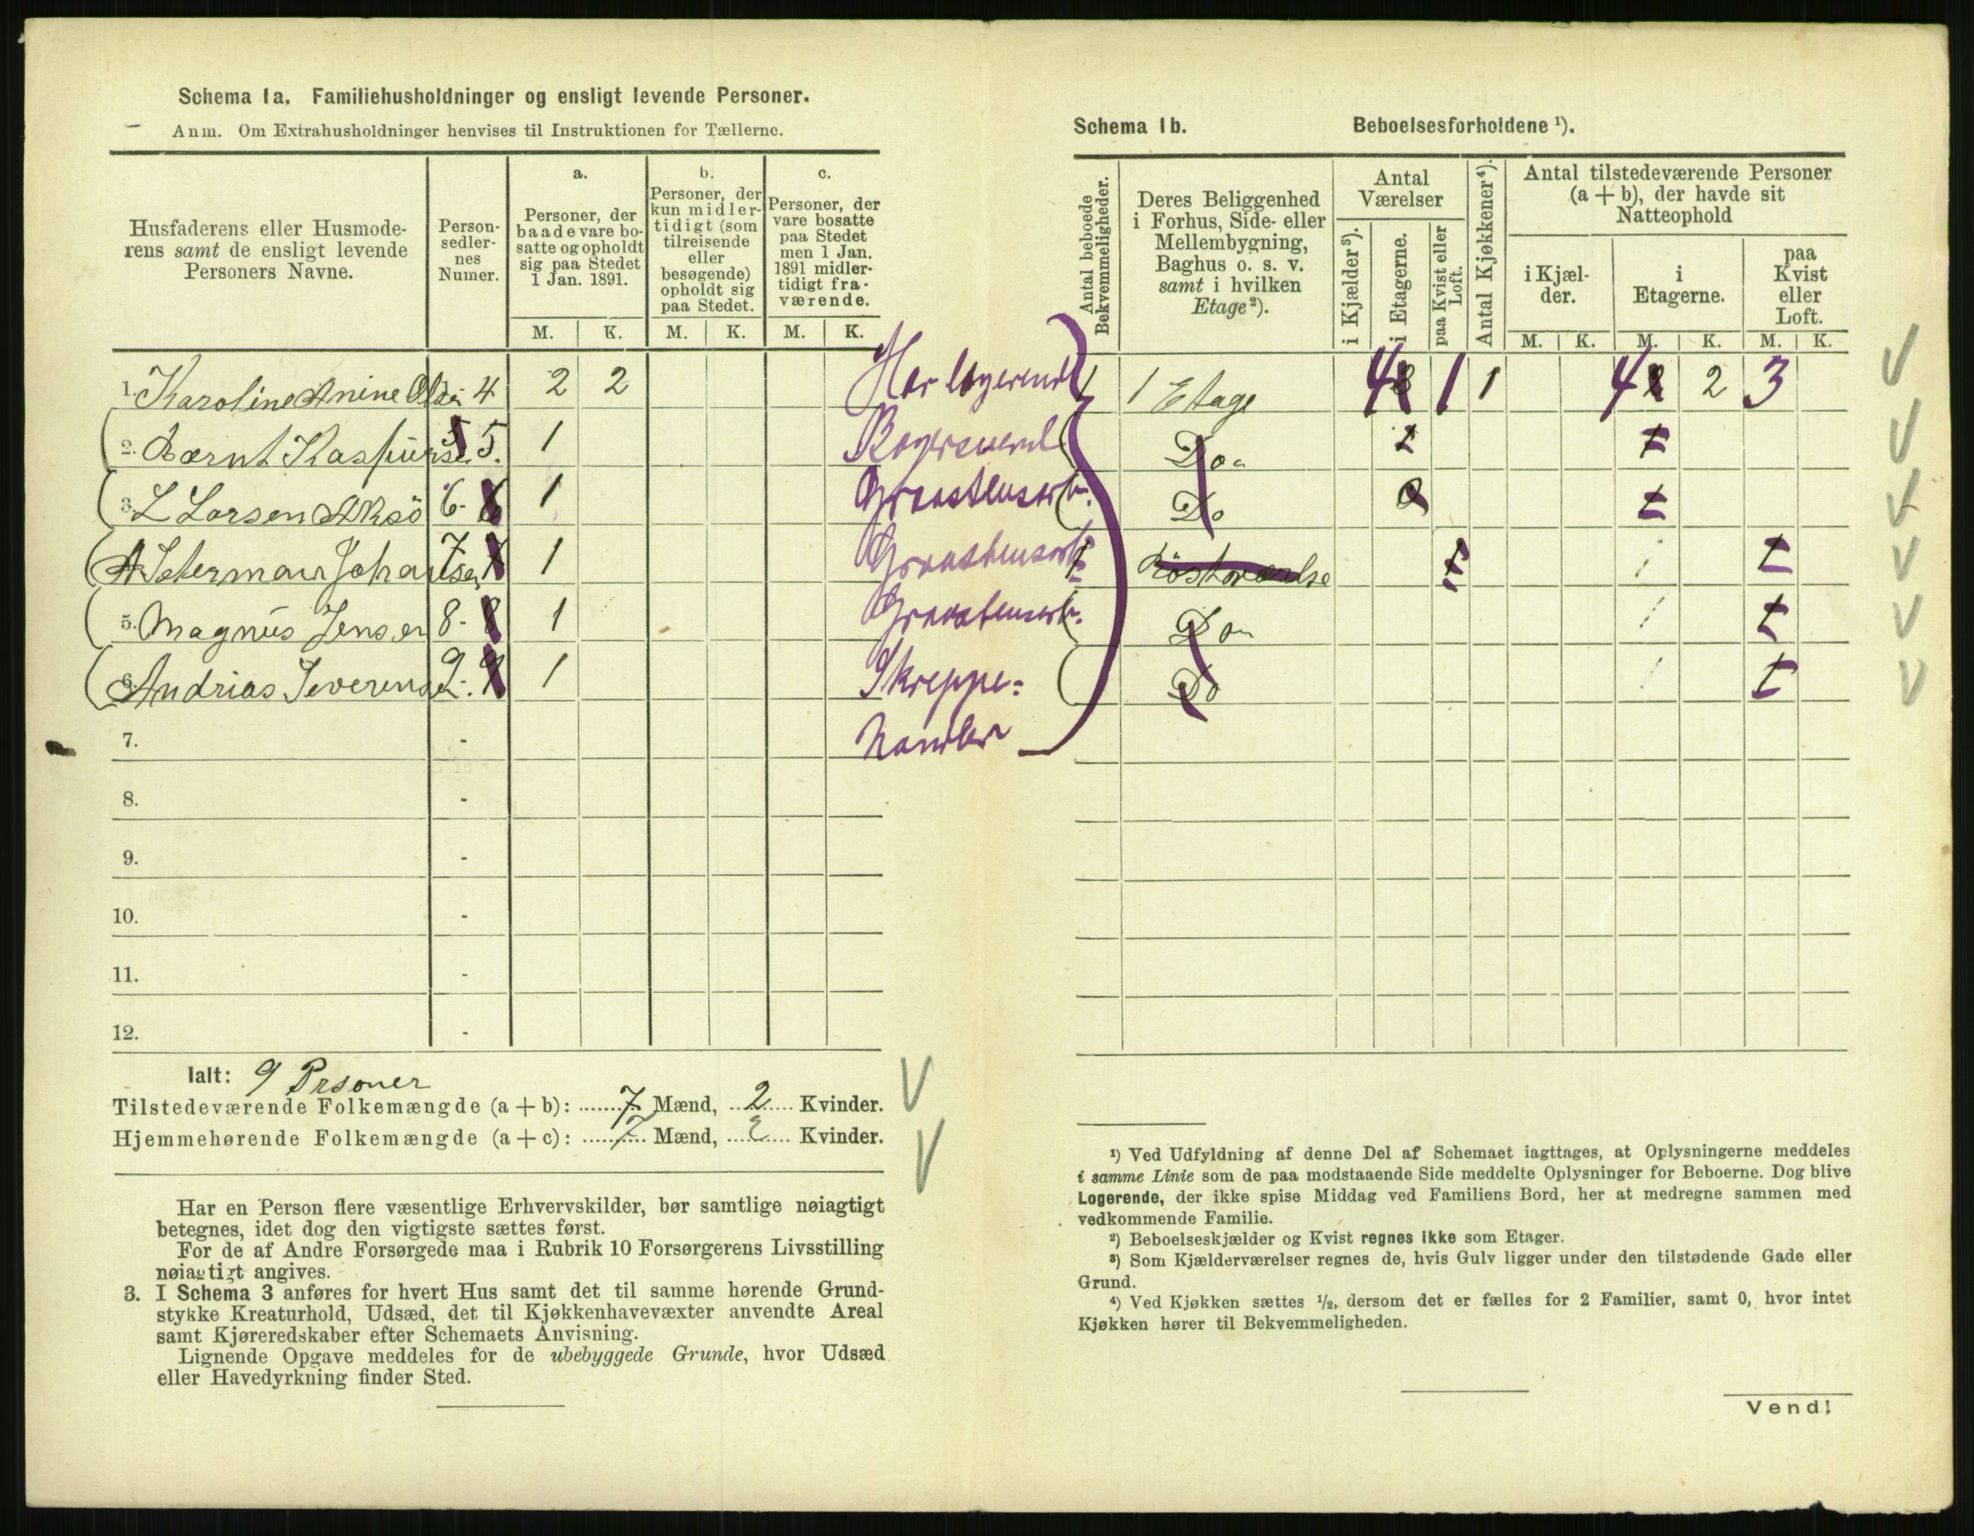 Schema 1a. Familiehusholdninger og ensligt levende Personer.
Anm. Om Extrahusholdninger henvises til Instruktionen for Tællerne.
Husfaderens eller Husmoderens samt de ensligt levende Personers Navne.
Personsedlernes Numer.
a.
Personer, der baade vare bosatte og opholdt sig paa Stedet 1 Jan. 1891.
b.
Personer, der kun midlertidigt (som tilreisende eller besøgende) opholdt sig paa Stedet.
c.
Personer, der vare bosatte paa Stedet men 1 Jan. 1891 midlertidigt fraværende.
M. K. M. K. M. K.
1. Karoline Anine - 4 2 2 Har logerende
2. Bærnt Kaspersen 5. 1
3. L Larsen Aksö 6- 1 Graastensarb.
Johansen 7- 1 Graastensarb.
5. Magnus Jensen 8- 8 1 Graastensarb.
6. Andrias Severensen 9- 9 1 Skreppe=
7. - handler
8. -
9. -
10. -
11. -
12. -
Ialt: 9 Prsoner
Tilstedeværende Folkemængde (a + b): 7 Mænd, 2 Kvinder.
Hjemmehørende Folkemængde (a + c): 7 Mænd, 2 Kvinder.
Har en Person flere væsentlige Erhvervskilder, bør samtlige nøiagtigt
betegnes, idet dog den vigtigste sættes først.
For de af Andre Forsørgede maa i Rubrik 10 Forsørgerens Livsstilling
nøiagtigt angives.
3. I Schema 3 anføres for hvert Hus samt det til samme hørende Grund-
stykke Kreaturhold, Udsæd, det til Kjøkkenhavevæxter anvendte Areal
samt Kjøreredskaber efter Schemaets Anvisning.
Lignende Opgave meddeles for de ubebyggede Grunde, hvor Udsæd
eller Havedyrkning finder Sted.
Schema 1b. Beboelsesforholdene ¹).
Antal beboede Bekvemmeligheder.
Deres Beliggenhed i Forhus, Side- eller Mellembygning, Baghus o. s. v. samt i hvilken Etage²).
Antal Værelser
i Kjælder³).
i Etagerne.
paa Kvist eller Loft.
Antal Kjøkkener⁴).
Antal tilstedeværende Personer (a + b), der havde sit Natteophold
i Kjælder.
i Etagerne.
paa Kvist eller Loft.
M. K. M. K. M. K.
1 1 Etage 4 1 1 4 2 3
Do 2 1
Do 1
1 1
Do 1
Do 1
¹) Ved Udfyldning af denne Del af Schemaet iagttages, at Oplysningerne meddeles
i samme Linie som de paa modstaaende Side meddelte Oplysninger for Beboerne. Dog blive
Logerende, der ikke spise Middag ved Familiens Bord, her at medregne sammen med
vedkommende Familie.
²) Beboelseskjælder og Kvist regnes ikke som Etager.
³) Som Kjælderværelser regnes de, hvis Gulv ligger under den tilstødende Gade eller
Grund.
⁴) Ved Kjøkken sættes ½, dersom det er fælles for 2 Familier, samt 0, hvor intet
Kjøkken hører til Bekvemmeligheden.
Vend!